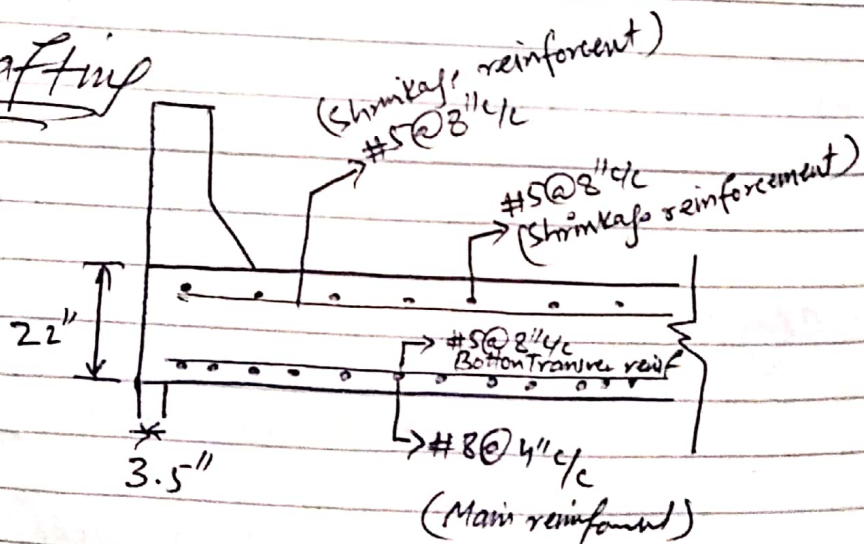 afting
(Shrinkage reinforcent)
#5@8"c/c
#5@8"c/c
(Shrinkage reinforcement)
22"
#5@8"c/c
Botton Transver reinf
3.5"
#8@4"c/c
(Main reinforcement)